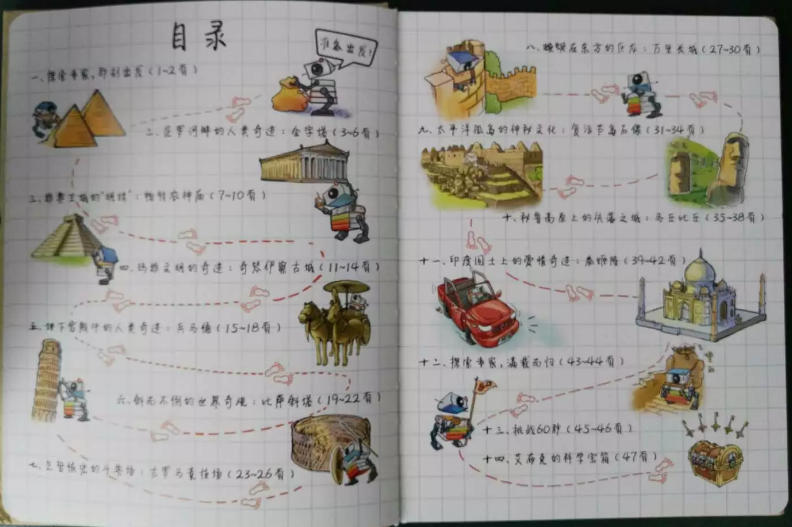 目录
准备出发!
一、探索专家，即刻出发(1~2页)
二、尼罗河畔的人类奇迹：金字塔(3~6页)
三、雅典王城的"明珠"：帕特农神庙(7~10页)
四、玛雅文明的奇迹：奇琴伊察古城(11~14页)
五、地下宫殿中的人类奇迹：兵马俑(15~18页)
六、斜而不倒的世界奇观：比萨斜塔(19~22页)
七、的斗兽场：古罗马竞技场(23~26页)
八、蜿蜒在东方的巨龙：万里长城(27~30页)
九、太平洋孤岛的神秘文化：复活节岛石像(31~34页)
十、秘鲁高原上的失落之城：马丘比丘(35~38页)
十一、印度国土上的爱情奇迹：泰姬陵(39~42页)
十二、探索专家，满载而归(43~44页)
十三、挑战60秒(45~46页)
十四、艾布克的科学宝箱(47页)